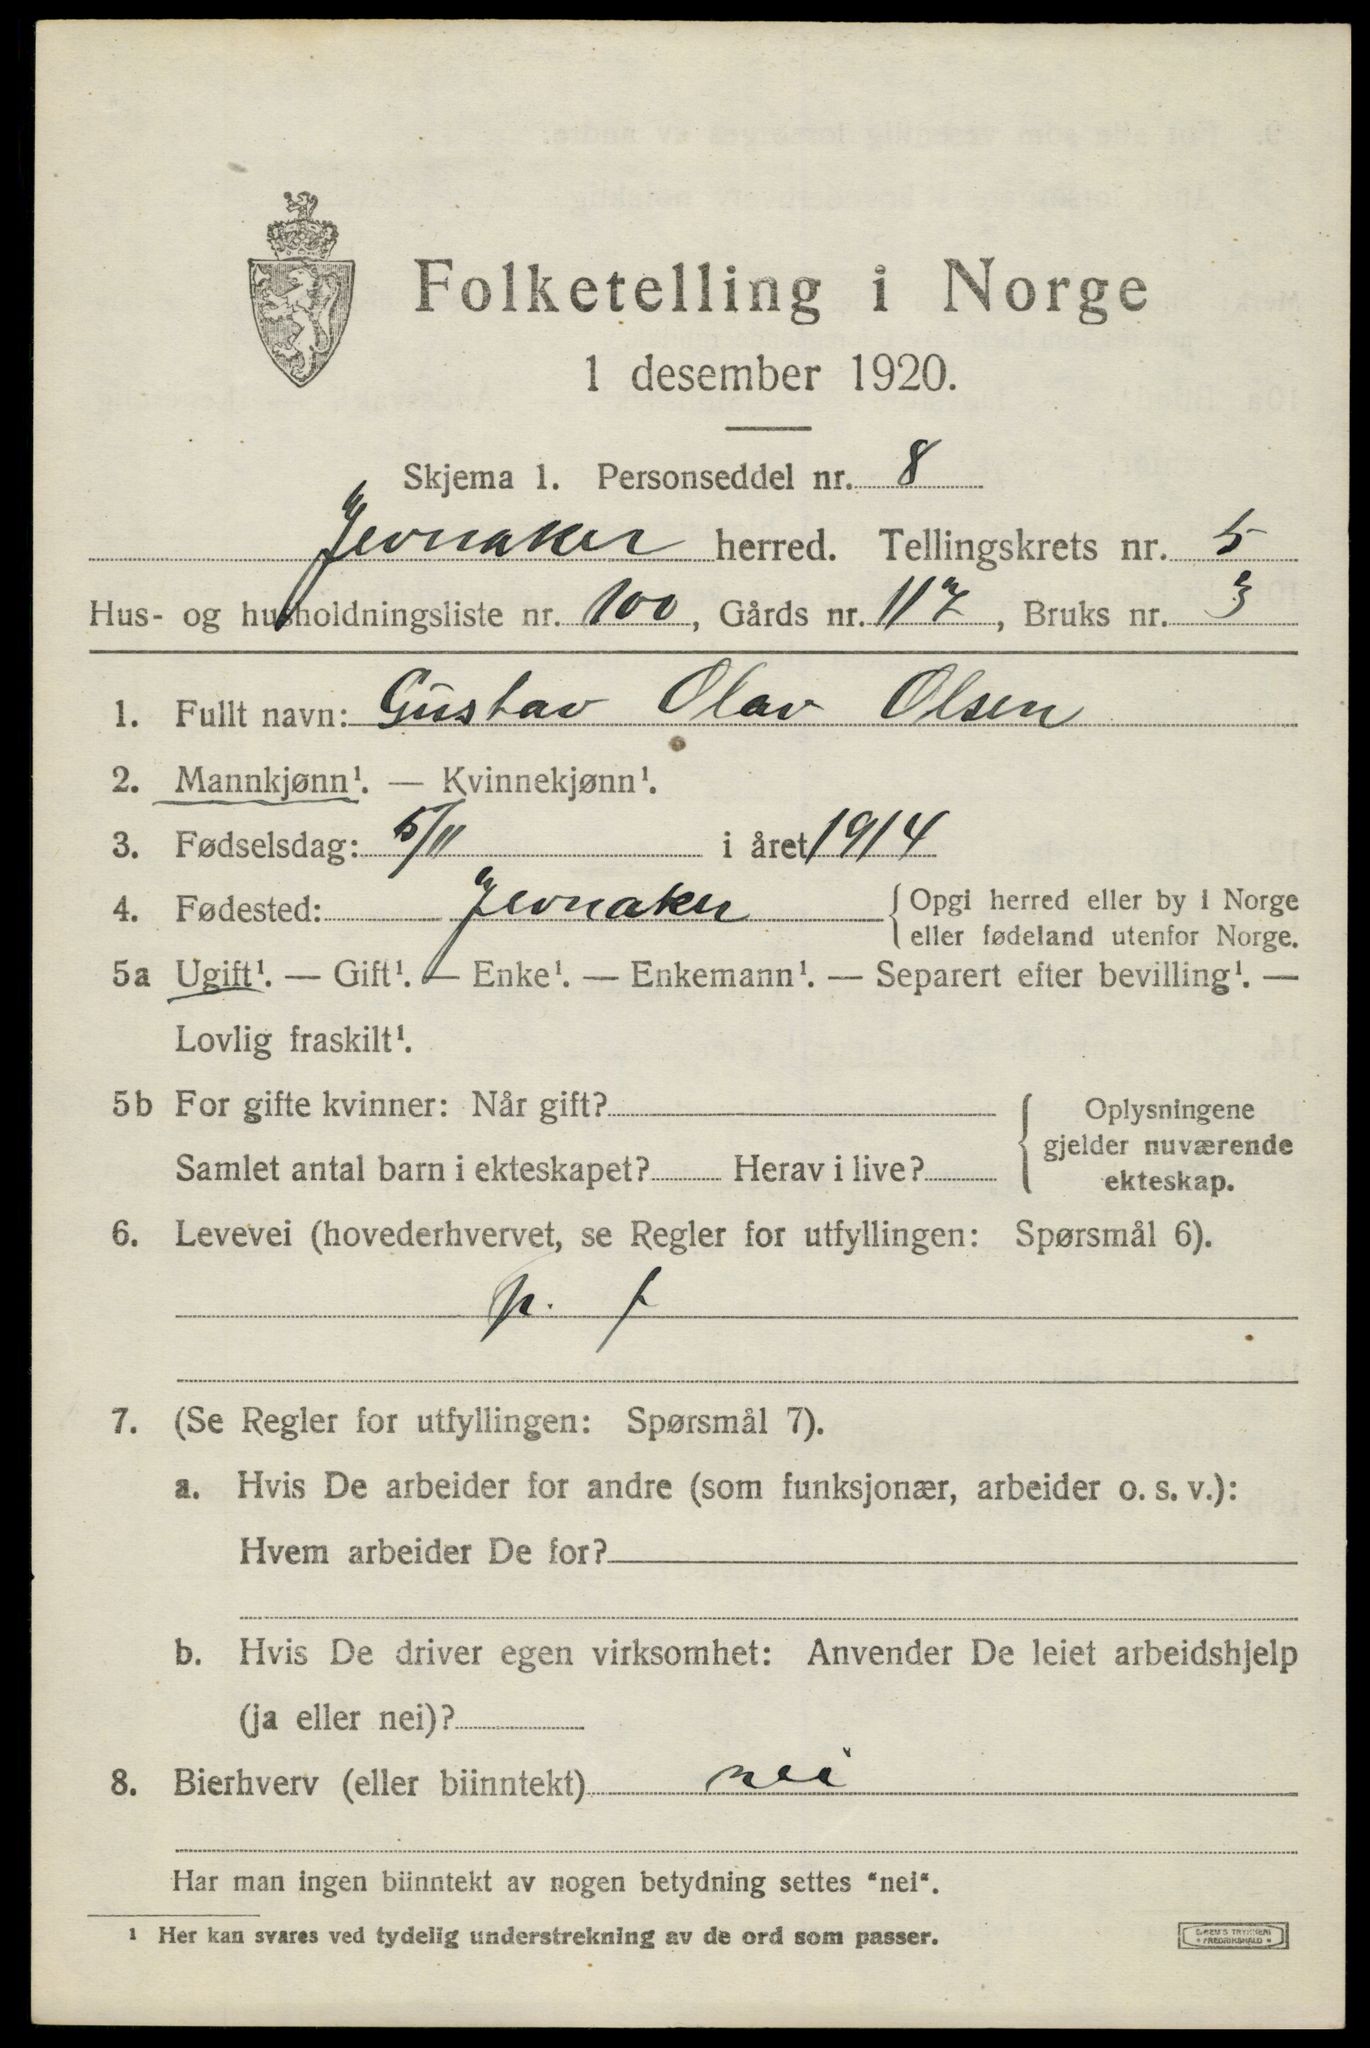 Folketelling i Norge
1 desember 1920.
Skjema 1. Personseddel nr. 8
Jevnaker herred. Tellingskrets nr. 5
Hus- og husholdningsliste nr. 100, Gårds nr. 117, Bruks nr. 3
1. Fullt navn: Gustav Olav Olsen
2. Mannkjønn¹. — Kvinnekjønn¹.
3. Fødselsdag: 5/11 i året 1914
4. Fødested: Jevnaker {Opgi herred eller by i Norge
eller fødeland utenfor Norge.
5a Ugift¹. — Gift¹. — Enke¹. — Enkemann¹. — Separert efter bevilling¹. —
Lovlig fraskilt¹.
5b For gifte kvinner: Når gift? { Oplysningene
gjelder nuværende
Samlet antal barn i ekteskapet? Herav i live? ekteskap.
6. Levevei (hovederhvervet, se Regler for utfyllingen: Spørsmål 6).
p. f
7. (Se Regler for utfyllingen: Spørsmål 7).
a. Hvis De arbeider for andre (som funksjonær, arbeider o. s. v.):
Hvem arbeider De for?
b. Hvis De driver egen virksomhet: Anvender De leiet arbeidshjelp
(ja eller nei)?
8. Bierhverv (eller biinntekt) nei
Har man ingen biinntekt av nogen betydning settes "nei".
¹ Her kan svares ved tydelig understrekning av de ord som passer.
TRYKKERI
FREDRIKSHALD